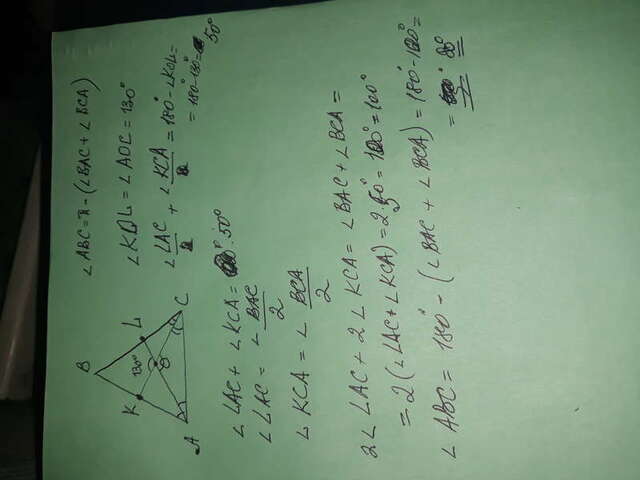 B
K 130° L
O
A C
∠ABC = π - (∠BAC + ∠BCA)
∠KOL = ∠AOC = 130°
∠LAC + ∠KCA = 180° - ∠KOL =
= 180° - 130° =
50°
∠LAC + ∠KCA = 50°
∠LAC = ∠BAC/2
∠KCA = ∠BCA/2
2∠LAC + 2∠KCA = ∠BAC + ∠BCA =
= 2(∠LAC + ∠KCA) = 2·50° = 100° = 100°
∠ABC = 180° - (∠BAC + ∠BCA) = 180° - 100° =
= 80°